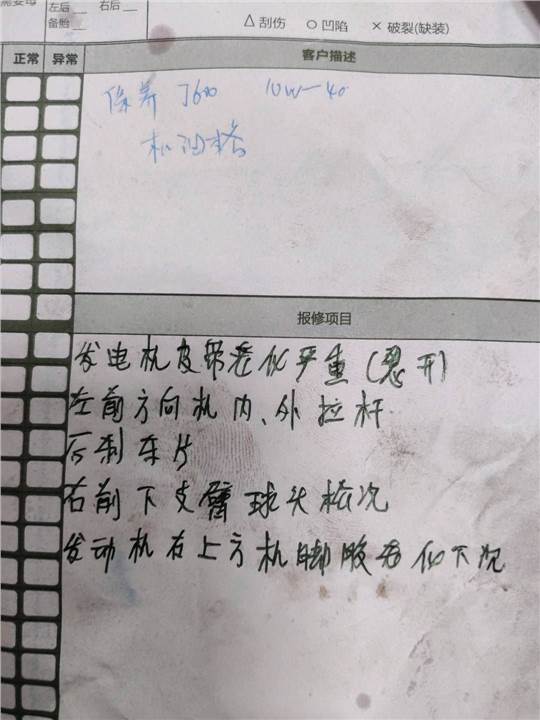 左后__ 右后__
备胎__
△刮伤 ○凹陷 ×破裂(缺装)
正常 异常 客户描述
保养 J600 10W-40
机油格
报修项目
发电机皮带老化严重(忽开)
左前方向机内、外拉杆
后刹车片
右前下支臂球头松
发动机右上方机脚胶老化下沉